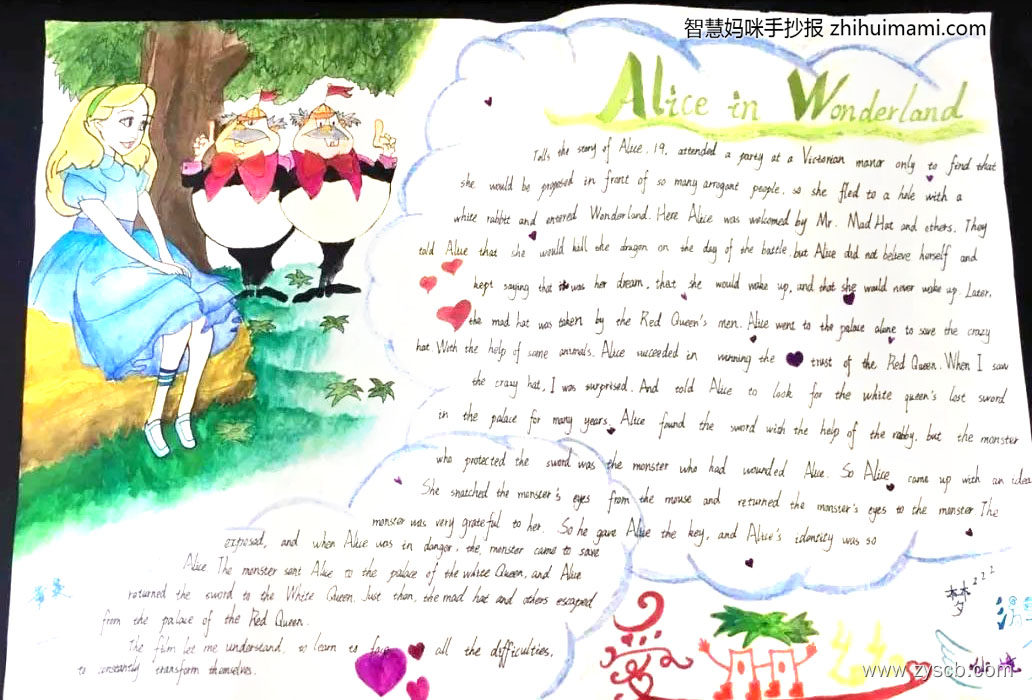 智慧妈咪手抄报 zhihuimami.com
Alice in Wonderland
Tells the story of Alice, 19, attended a party at a Victorian manor only to find that
she would be proposed in front of so many arrogant people, so she fled to a hole with a
white rabbit and entered Wonderland. Here Alice was welcomed by Mr. Mad Hat and others. They
told Alice that she would kill the dragon on the day of the battle, but Alice did not believe herself and
kept saying that was her dream, that she would wake up, and that she would never wake up. Later,
the mad hat was taken by the Red Queen's men. Alice went to the palace alone to save the crazy
hat With the help of some animals. Alice succeeded in winning the trust of the Red Queen. When I saw
the crazy hat, I was surprised. And told Alice to look for the white queen's lost sword
in the palace for many years. Alice found the sword with the help of the but the monster
who protected the sword was the monster who had wounded Alice. So Alice came up with an idea
She snatched the monster's eyes from the mouse and returned the monster's eyes to the monster. The
monster was very grateful to her. So he gave Alice the key, and Alice's identity was so
exposed, and when Alice was in danger, the monster came to save
Alice The monster sent Alice to the palace of the white Queen, and Alice
returned the sword to the White Queen. Just then, the mad hat and others escaped
from the palace of the Red Queen.
The film let me understand, so learn to face all the difficulties,
to constantly transform themselves.
梦 z z z
爱
www.zyscb.com